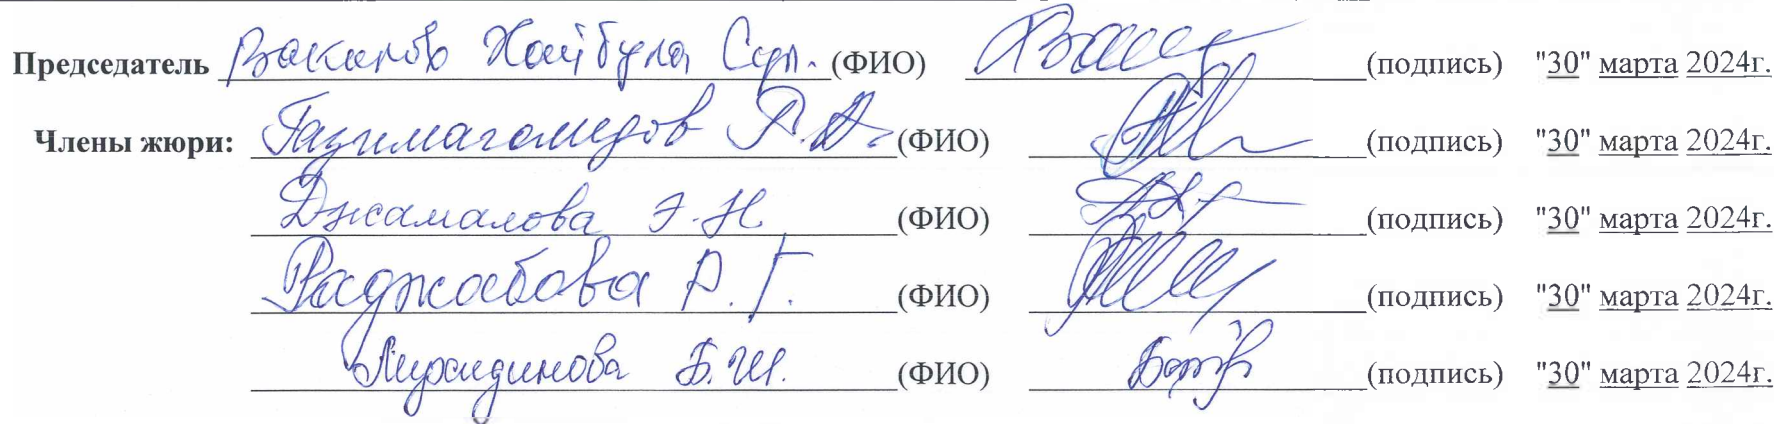 Председатель Хайбула (ФИО) (подпись) "30" марта 2024г.
Члены жюри: Газимагомедов Р.А. (ФИО) (подпись) "30" марта 2024г.
Джамалова Э.Н. (ФИО) (подпись) "30" марта 2024г.
Раджабова Р.Г. (ФИО) (подпись) "30" марта 2024г.
Б.Ш. (ФИО) (подпись) "30" марта 2024г.